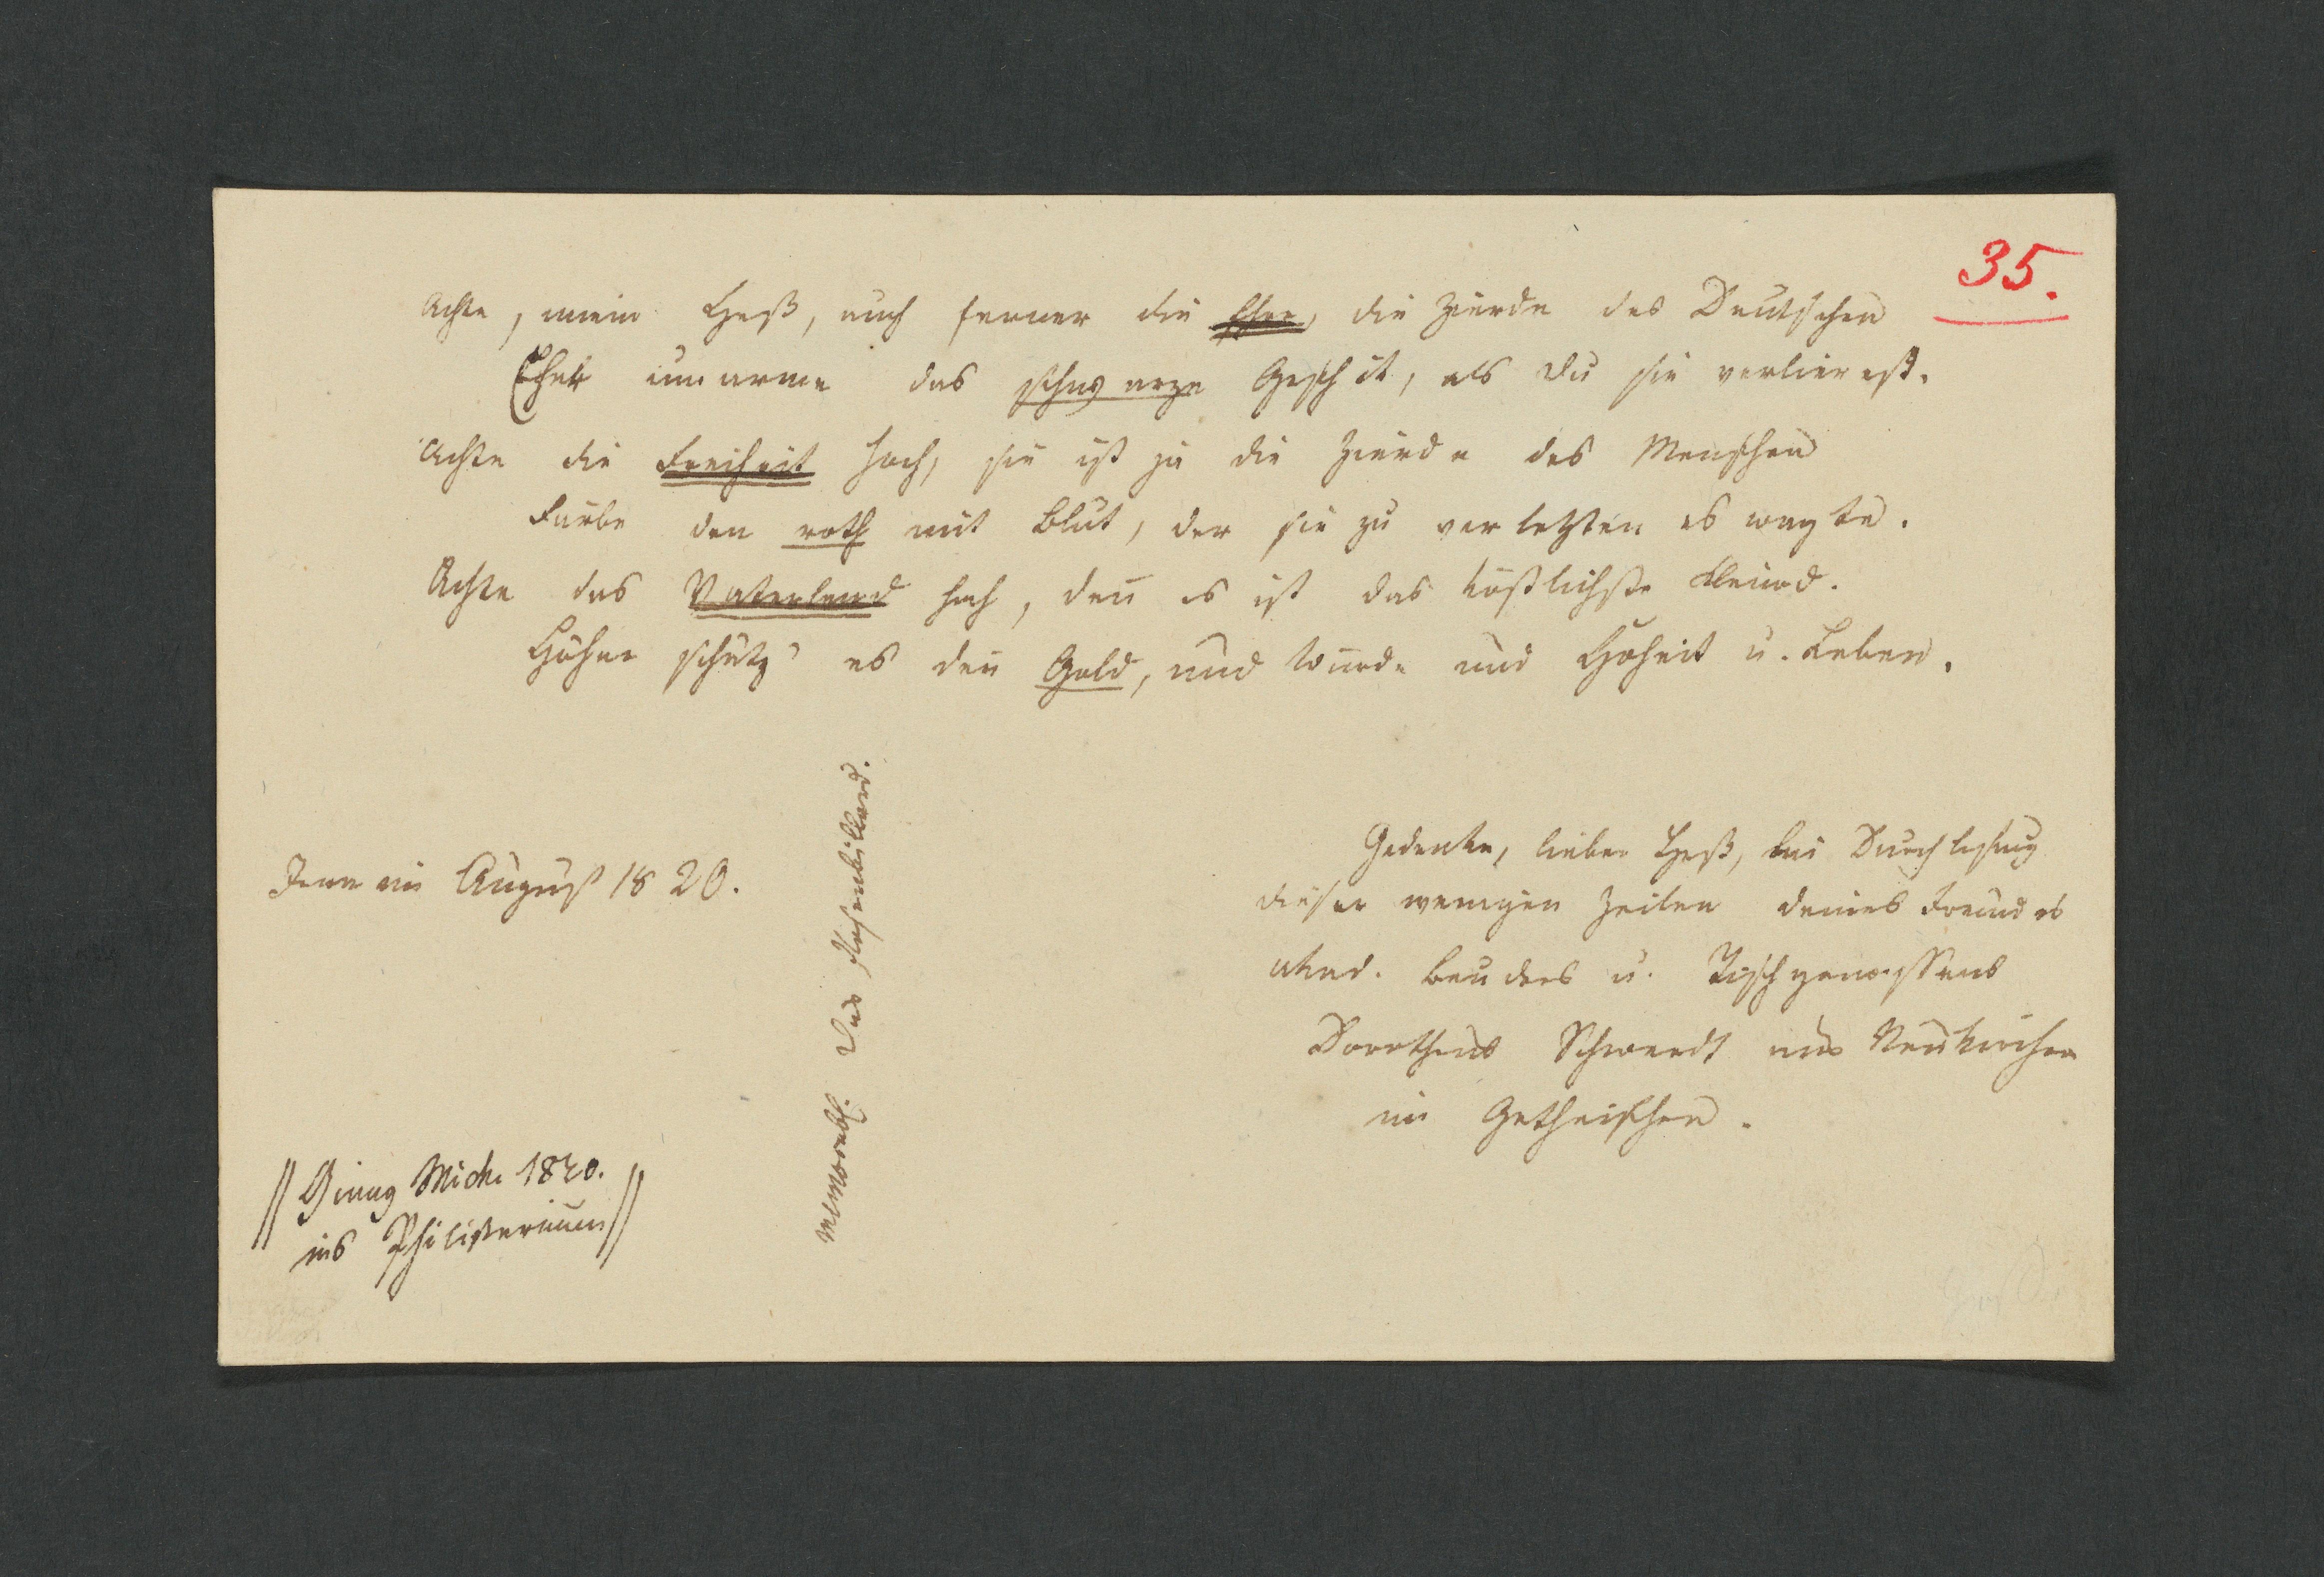 35.
Achte, mein Heß, auch ferner die Ehre, die Zierde des Deutschen
Eher umarme das schwarze Geschik, als du sie verlierest.
Achte die Freiheit hoch, sie ist ja die Zierde des Menschen
Färbe den roth mit Blut, der sie zu verletzten es wagte.
Achte das Vaterland hoch, den̄ es ist das köstlichste Kleinod.
Höher schätz' es den̄ Gold, und Würde und Hoheit u. Leben.
Jena im August 1820.
memorab. Das Hasenbillard.
Gedenke, lieber Heß, bei Durchlesung
dieser wenigen Zeilen deines Freundes
akad. Bruders u. Tischgenossens
Dorotheus Schwerdt aus Neukirchen
im Gothaischen.
// Gieng Mich. 1820.
ins Philisterium //